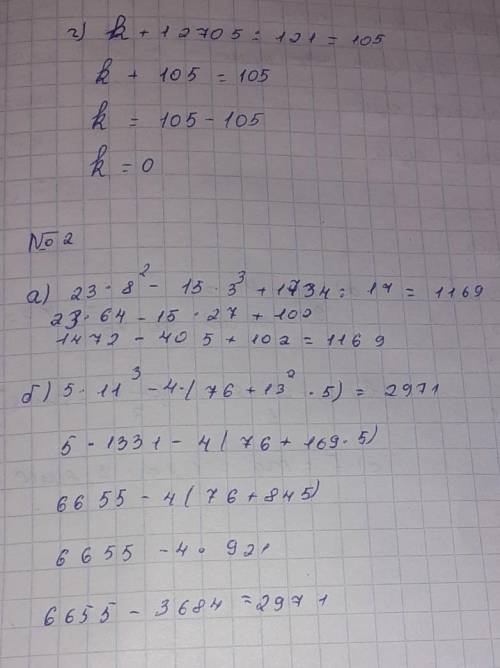 г) k + 12705 : 121 = 105
k + 105 = 105
k = 105 - 105
k = 0
№ 2
а) 23 · 8² - 15 · 3³ + 1734 : 17 = 1169
23 · 64 - 15 · 27 + 102
1472 - 405 + 102 = 1169
б) 5 · 11³ - 4 · ( 76 + 13² · 5) = 2971
5 · 1331 - 4 ( 76 + 169 · 5)
6655 - 4 ( 76 + 845)
6655 - 4 · 921
6655 - 3684 = 2971